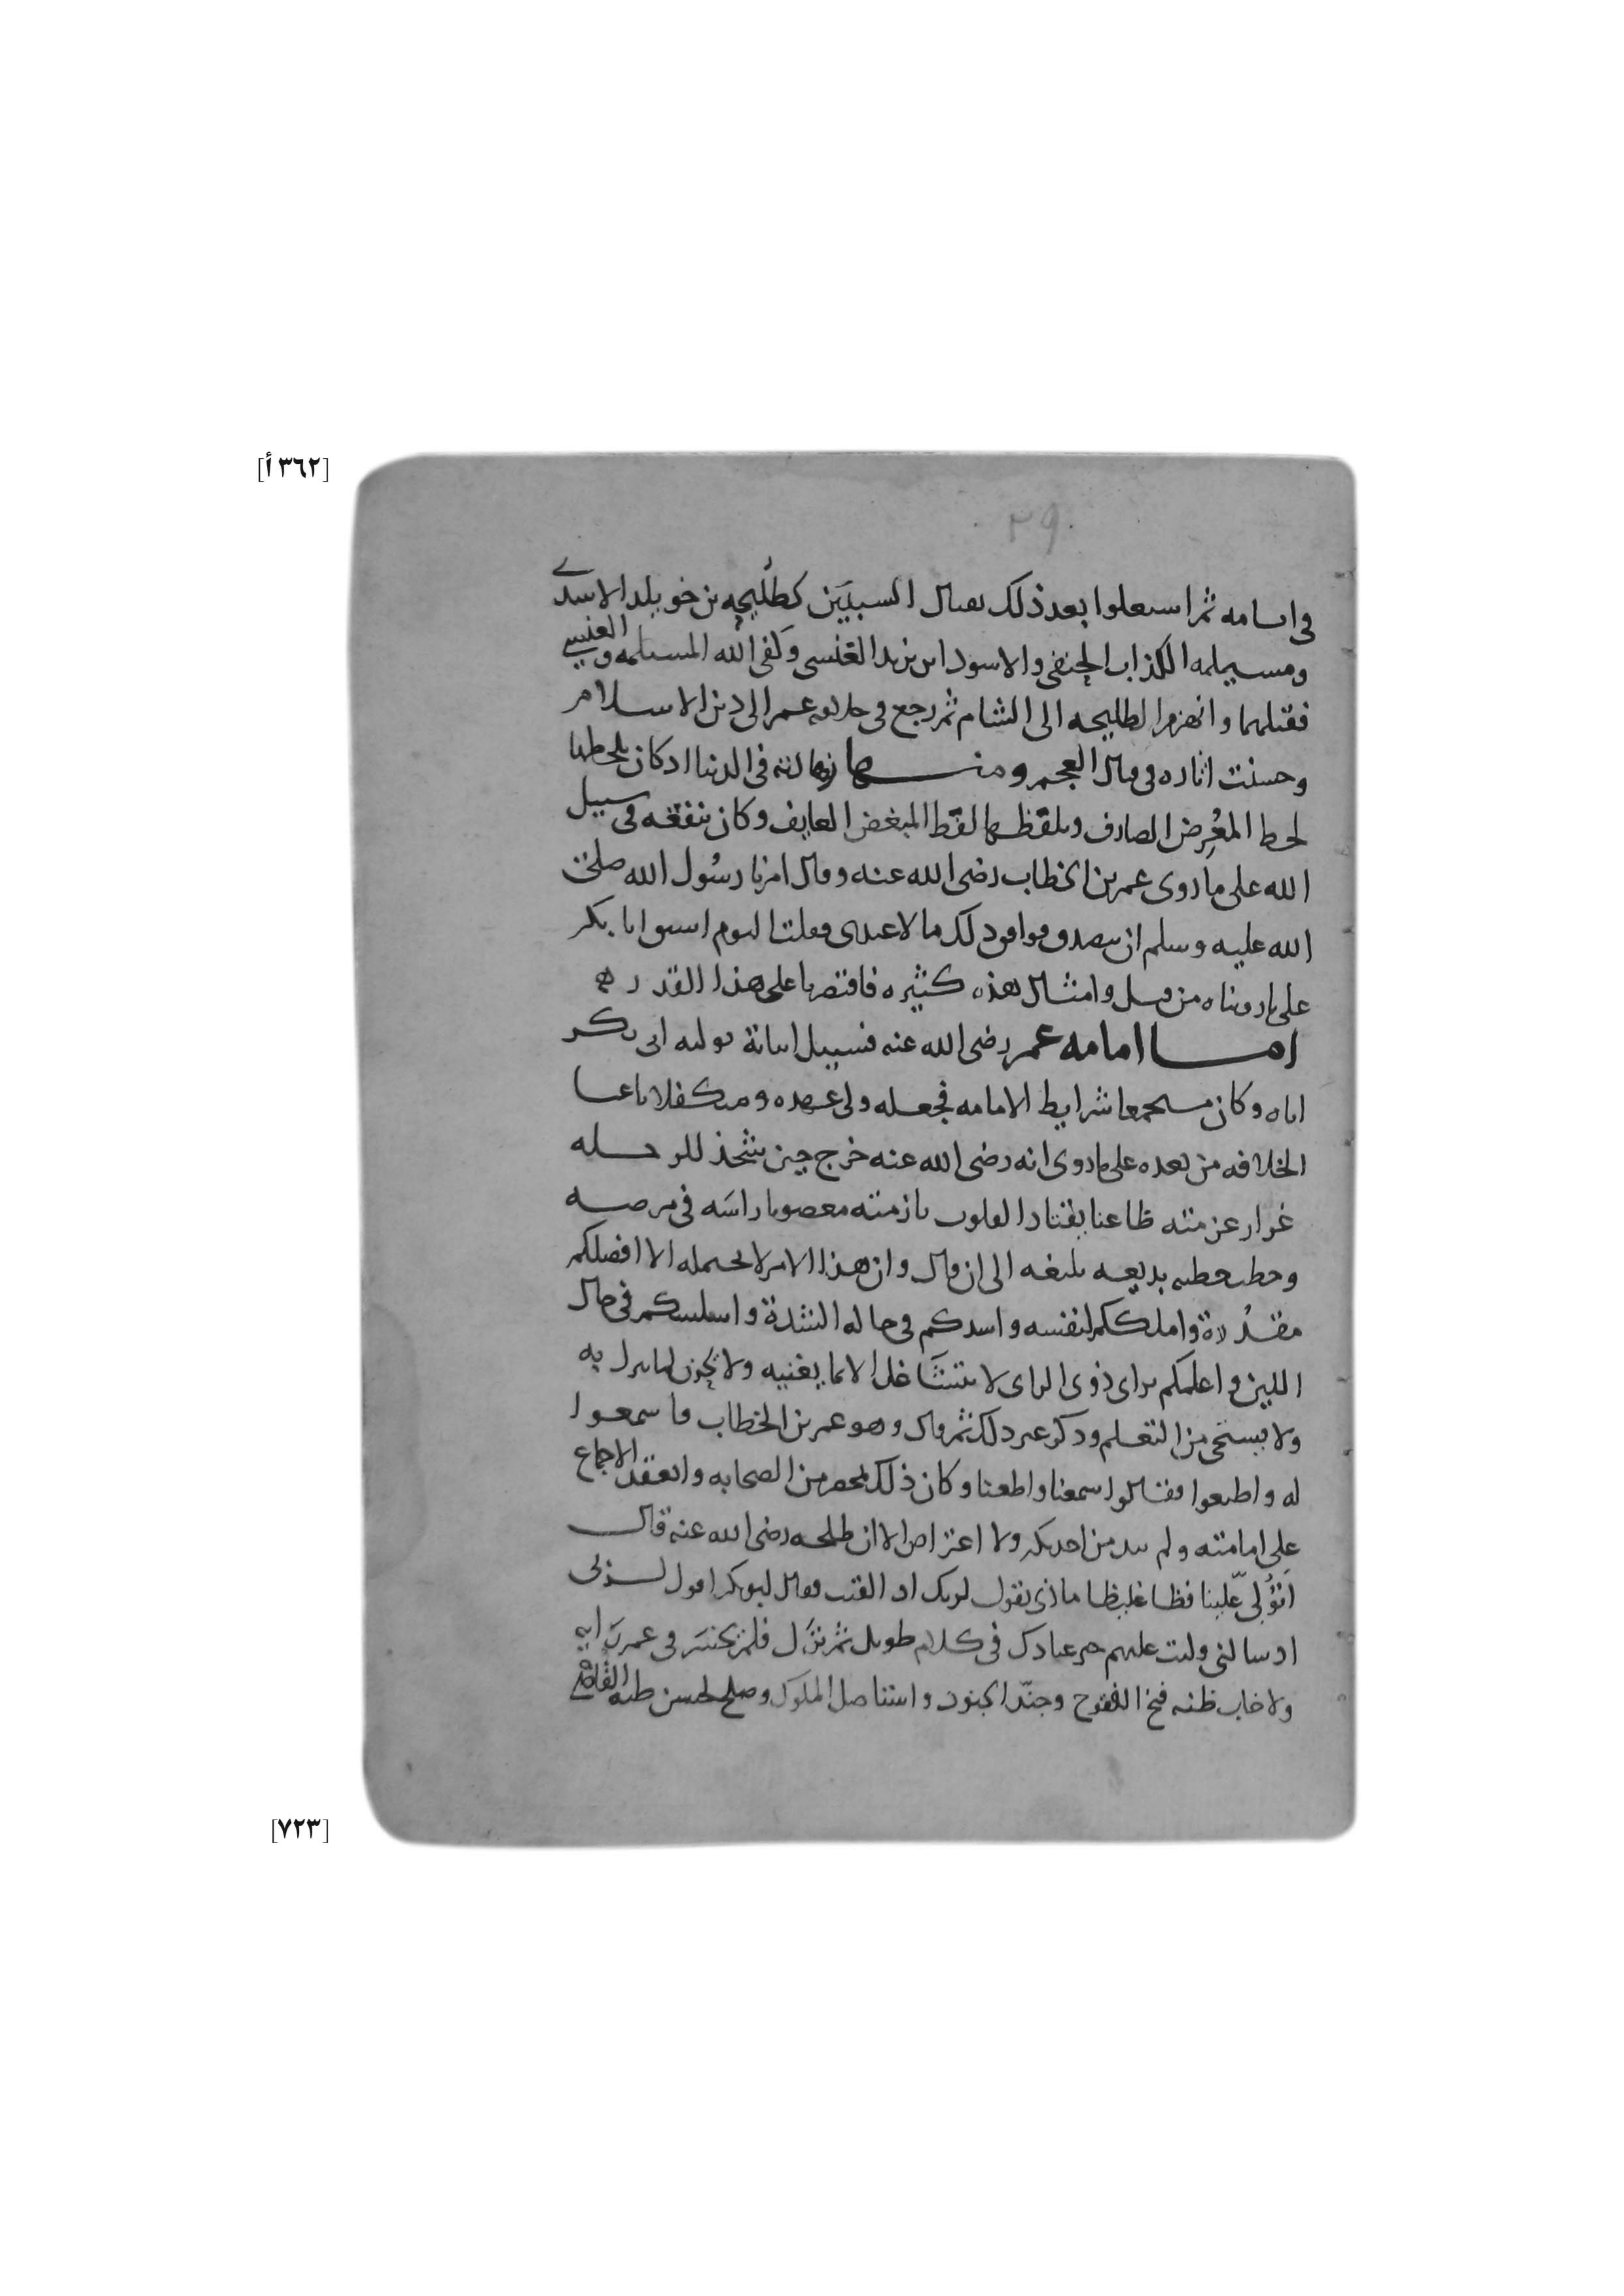 [٣٦٢ أ]
٢٩
في اسامه ثم اسعلوا بعد ذلك بقتال المتنبيين كطليحه بن خويلد الاسدي
ومسيلمه الكذاب الحنفي والاسود ابن يزيد العنسي وكفى الله المسيلمه والعنسي
فقتلهما وانهزم الطليحه الى الشام ثم رجع في خلافه عمر الى دين الاسلام
وحسنت اثاره في قتال العجم ومنها زهادته في الدنيا اذ كان يلحظها
لحظ المعرض الصادف ويلفظها لفظ المبغض العايف وكان ينفقه في سبيل
الله على ما روى عمر بن الخطاب رضي الله عنه وقال امرنا رسول الله صلى
الله عليه وسلم ان نتصدق فوافق ذلك مالا عندي فقلت اليوم اسبق ابا بكر
على ما رويناه من قبل وامثال هذه كثيره فاقتصرنا على هذا القدر
اما امامه عمر رضي الله عنه فسبيل اثباته توليه ابي بكر
اياه وكان مستجمعا شرايط الامامه فجعله ولي عهده ومتكفلا باعبا
الخلافه من بعده على ما روى انه رضي الله عنه خرج حين شحذ للرحله
غرار عزمته ظاعنا يقتاد القلوب بازمته معصوبا راسه في مرضه
وخطب خطبه بديعه بليغه الى ان قال وان هذا الامر لا يحتمله الا افضلكم
مقدرة واملككم لنفسه واشدكم في حاله الشدة واسلسكم في حال
اللين واعلمكم براي ذوي الراي لا يتشاغل الا بما يعنيه ولا يحزن لما ينزل به
ولا يستحي من التعلم وذكر غير ذلك ثم قال وهو عمر بن الخطاب فاسمعوا
له واطيعوا فقالوا سمعنا واطعنا وكان ذلك بمحضر من الصحابه وانعقد الاجماع
على امامته ولم يبد من احد نكر ولا اعتراض الا ان طلحه رضي الله عنه قال
اتولي علينا فظا غليظا ماذي تقول لربك اذا لقيت فقال ابو بكر اقول لربي
اذ سالني وليت عليهم خير عبادك في كلام طويل ثم نزل فلم
ولا خاب ظنه فتح الفتوح وجند الجنود واستاصل الملوك
[٧٢٣]